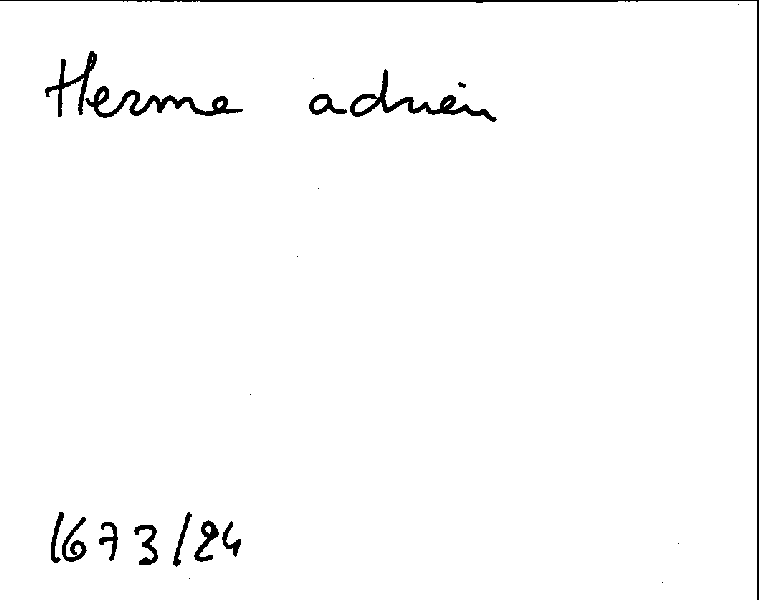 Herme adrien
1673/24